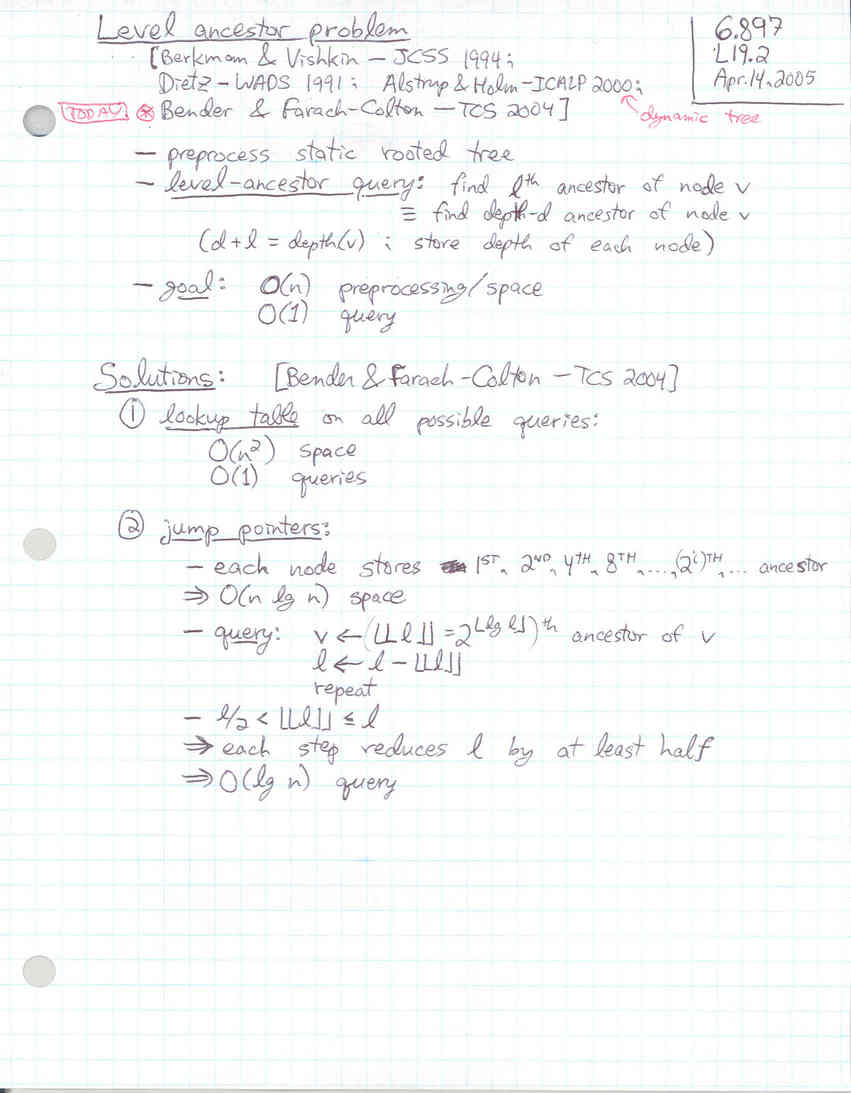 Level ancestor problem
6.897
L19.2
Apr. 14, 2005
[Berkman & Vishkin — JCSS 1994;
Dietz – WADS 1991; Alstrup & Holm – ICALP 2000;
TODAY ⊛ Bender & Farach-Colton — TCS 2004]
dynamic tree
— preprocess static rooted tree
— level-ancestor query: find ℓth ancestor of node v
≡ find depth-d ancestor of node v
(d + ℓ = depth(v) ; store depth of each node)
— goal: O(n) preprocessing/space
O(1) query
Solutions: [Bender & Farach-Colton — TCS 2004]
① lookup table on all possible queries:
O(n²) space
O(1) queries
② jump pointers:
— each node stores 1ST, 2ND, 4TH, 8TH, ..., (2^i)TH, ... ancestor
⇒ O(n lg n) space
— query: v ← (⌊⌊ℓ⌋⌋ = 2^⌊lg ℓ⌋)th ancestor of v
ℓ ← ℓ – ⌊⌊ℓ⌋⌋
repeat
— ℓ/2 < ⌊⌊ℓ⌋⌋ ≤ ℓ
⇒ each step reduces ℓ by at least half
⇒ O(lg n) query